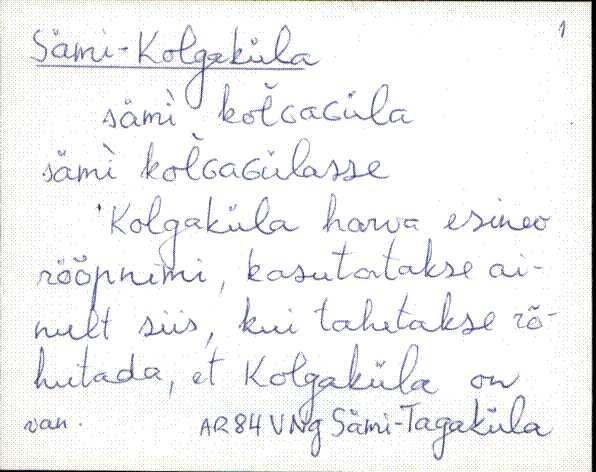 1
Sämi-Kolgaküla
sämì kol̆ɢaɢüla
sämì kol̆ɢaɢülasse
Kolgaküla harva esinev
rööpnimi, kasutatakse ai-
nult siis, kui tahetakse rõ-
hutada, et Kolgaküla on
van. AR84 VNg Sämi-Tagaküla